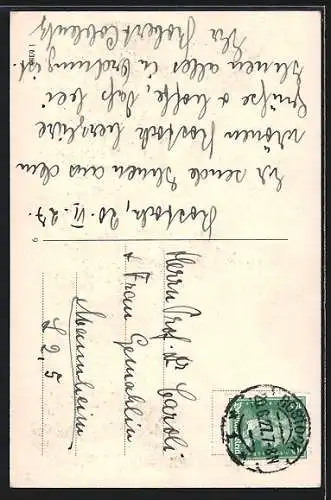 Rostock, 20. VI. 27.
Ich sende Ihnen aus dem
schönen Rostock herzliche
Grüße & hoffe, daß bei
Ihnen alles in Ordnung ist.
Ihr Robert
Herrn Prof. Dr Caroli
& Frau Gemahlin
Mannheim
L 2, 5
ROSTOCK